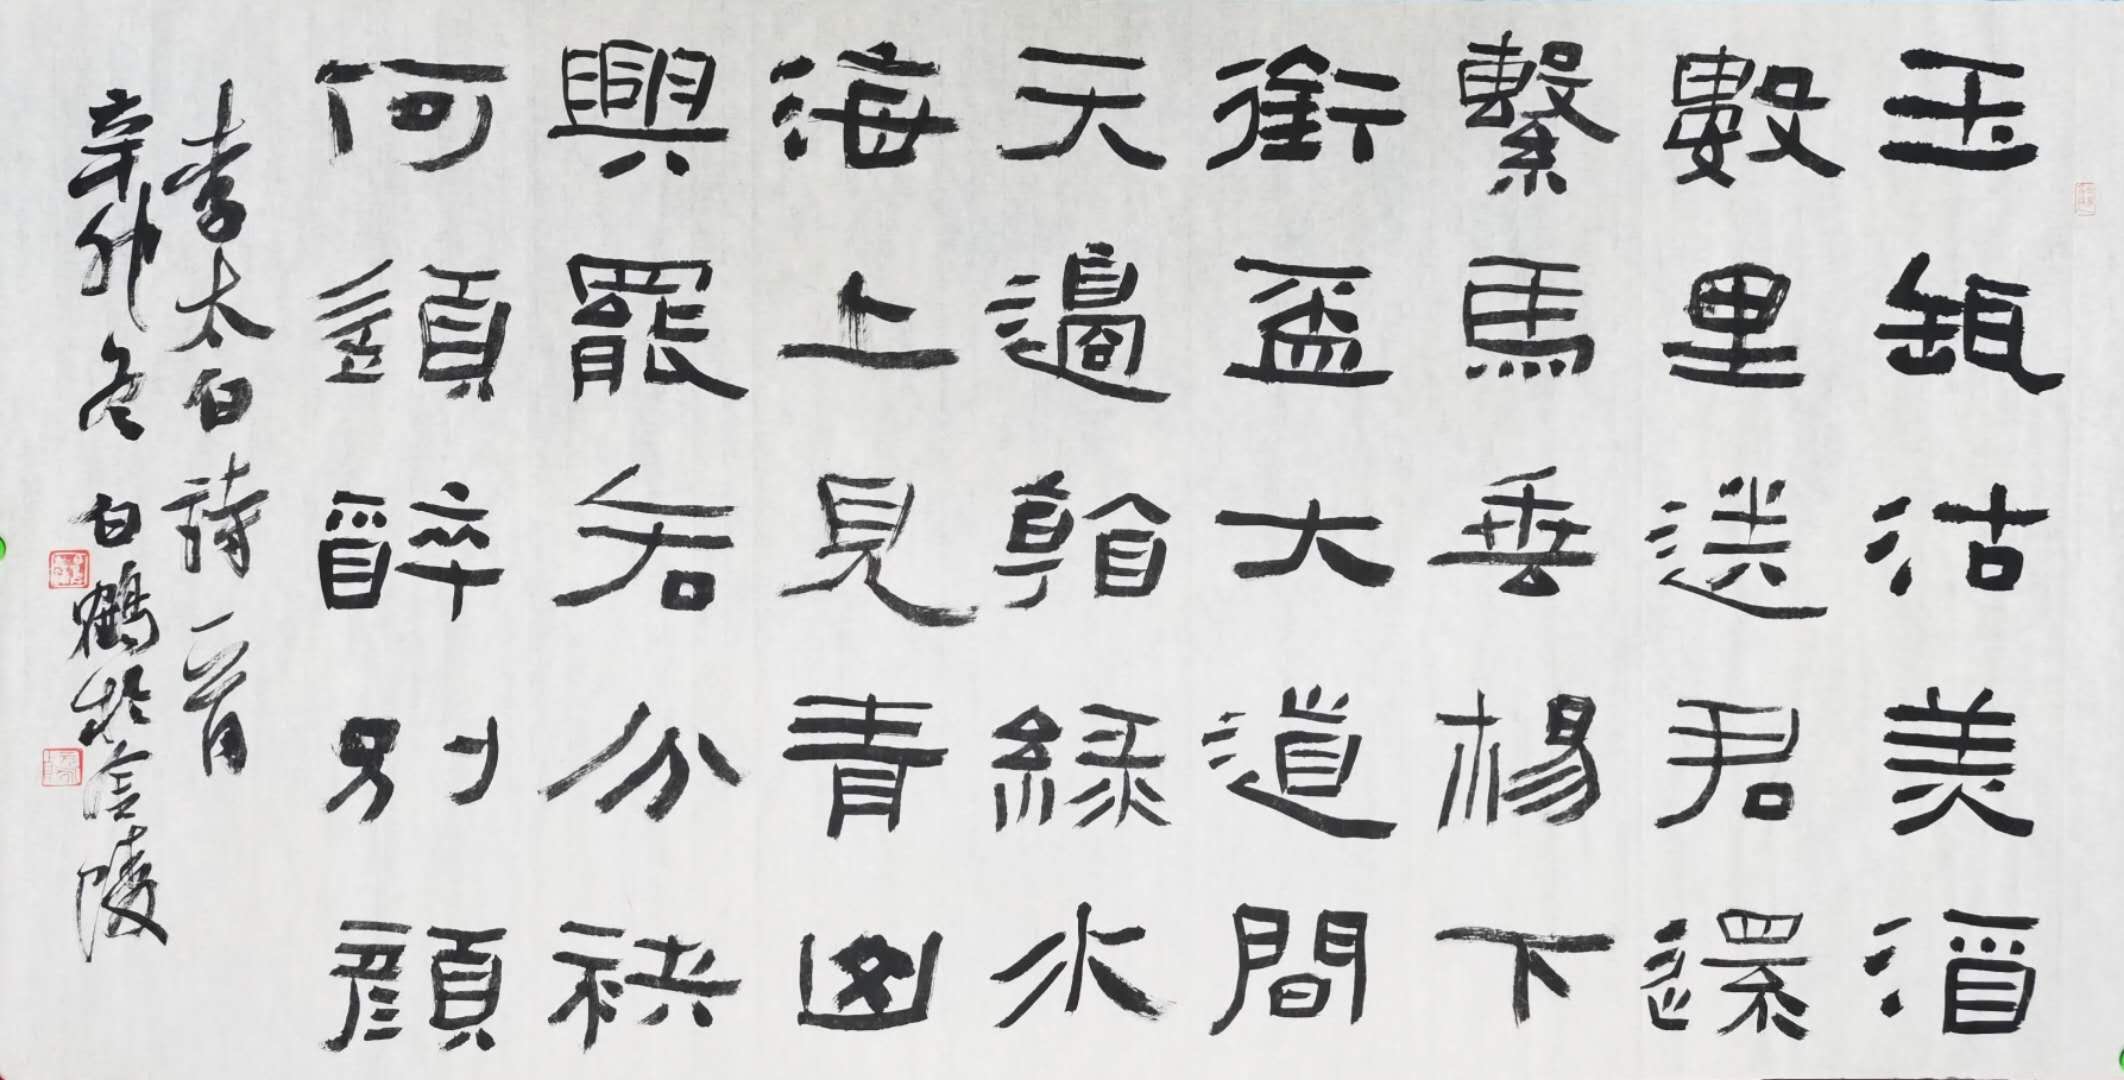 玉瓶沽美酒
數里送君還
繫馬垂楊下
銜盃大道間
天邊看綠水
海上見青山
興罷各分袂
何須醉別顏
李太白詩一首
辛卯冬白鶴於金陵